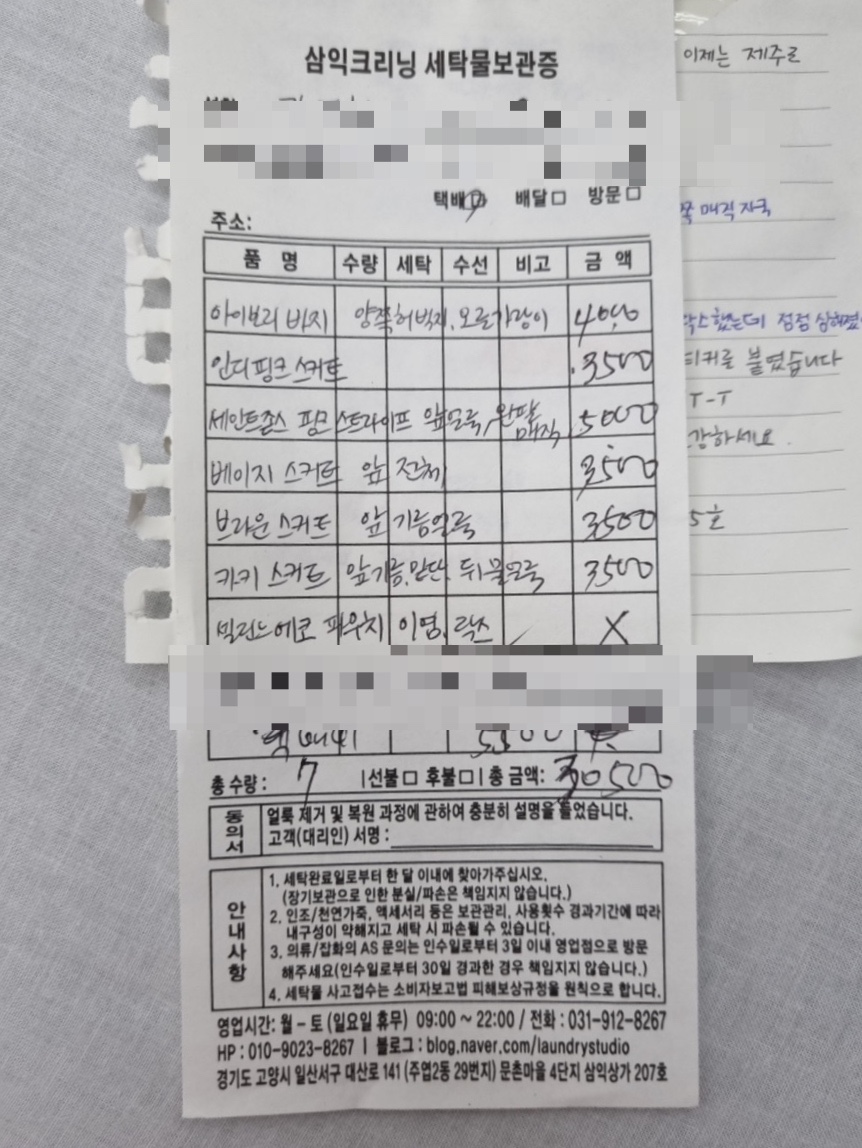 삼익크리닝 세탁물보관증
택배☑ 배달□ 방문□
주소:
품 명 수량 세탁 수선 비고 금 액
아이보리 바지 양쪽허벅지, 오른가랑이 4000
인디핑크스커트 3500
세인트존스 핑크 스트라이프 앞얼룩, 왼팔 매직 5000
베이지 스커트 앞 전체 3500
브라운 스커트 앞 기름얼룩 3500
카키 스커트 앞기름, 밑단, 뒤물얼룩 3500
에코 파우치 이염, 락스 X
총 수량 : 7 |선불□ 후불□| 총 금액: 30500
동의서
얼룩 제거 및 복원 과정에 관하여 충분히 설명을 들었습니다.
고객(대리인) 서명 :
안내사항
1. 세탁완료일로부터 한 달 이내에 찾아가주십시오.
(장기보관으로 인한 분실/파손은 책임지지 않습니다.)
2. 인조/천연가죽, 액세서리 등은 보관관리, 사용횟수 경과기간에 따라
내구성이 약해지고 세탁 시 파손될 수 있습니다.
3. 의류/잡화의 AS 문의는 인수일로부터 3일 이내 영업점으로 방문
해주세요(인수일로부터 30일 경과한 경우 책임지지 않습니다.)
4. 세탁물 사고접수는 소비자보고법 피해보상규정을 원칙으로 합니다.
영업시간: 월 – 토 (일요일 휴무) 09:00 ~ 22:00 / 전화 : 031-912-8267
HP : 010-9023-8267 | 블로그 : blog.naver.com/laundrystudio
경기도 고양시 일산서구 대산로 141 (주엽2동 29번지) 문촌마을 4단지 삼익상가 207호
이제는 제주로
쪽 매직 자국
락스했는데 점점 심해졌
티커로 붙였습니다
T-T
감하세요.
5호